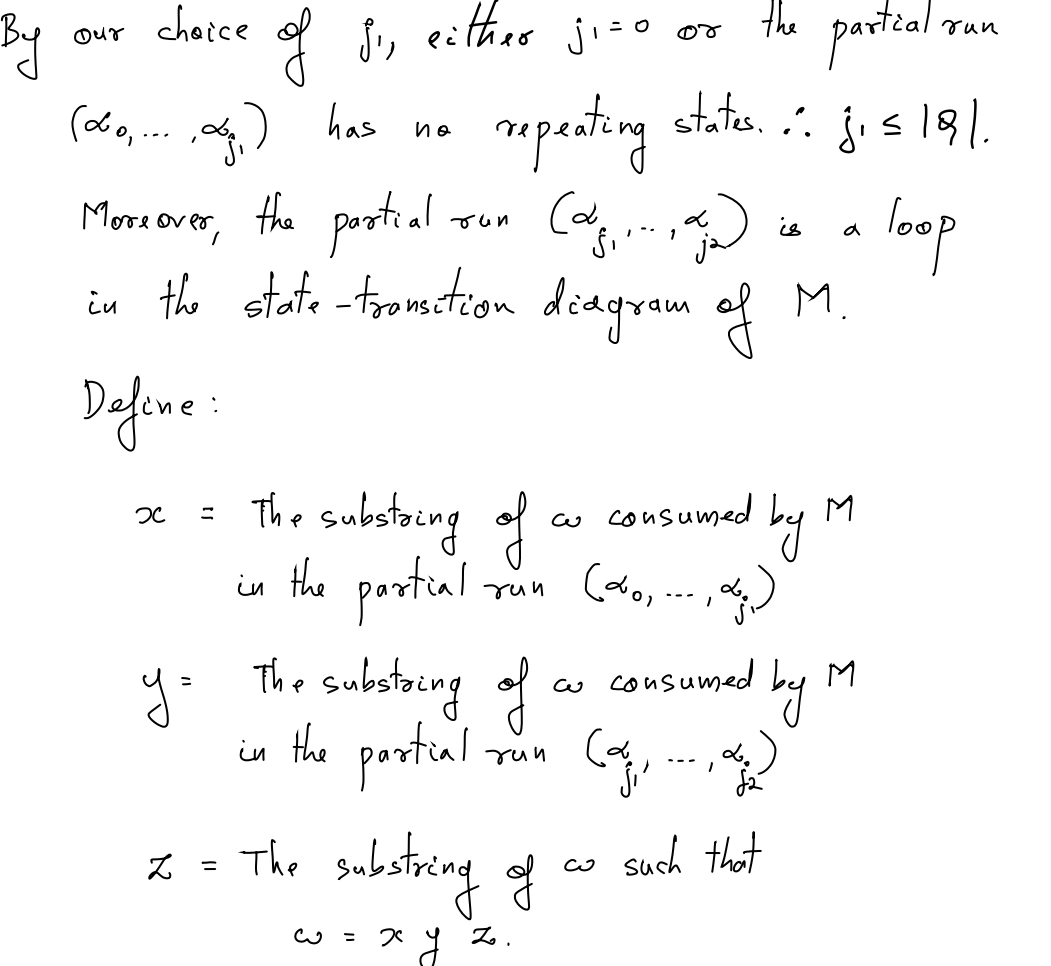 By our choice of j₁, either j₁ = 0 or the partial run
(α₀, ... , α_j₁) has no repeating states. ∴ j₁ ≤ |Q|.
Moreover, the partial run (α_j₁, ... , α_j₂) is a loop
in the state-transition diagram of M.
Define :
x = The substring of ω consumed by M
in the partial run (α₀, ... , α_j₁)
y = The substring of ω consumed by M
in the partial run (α_j₁, ... , α_j₂)
z = The substring of ω such that
ω = x y z.